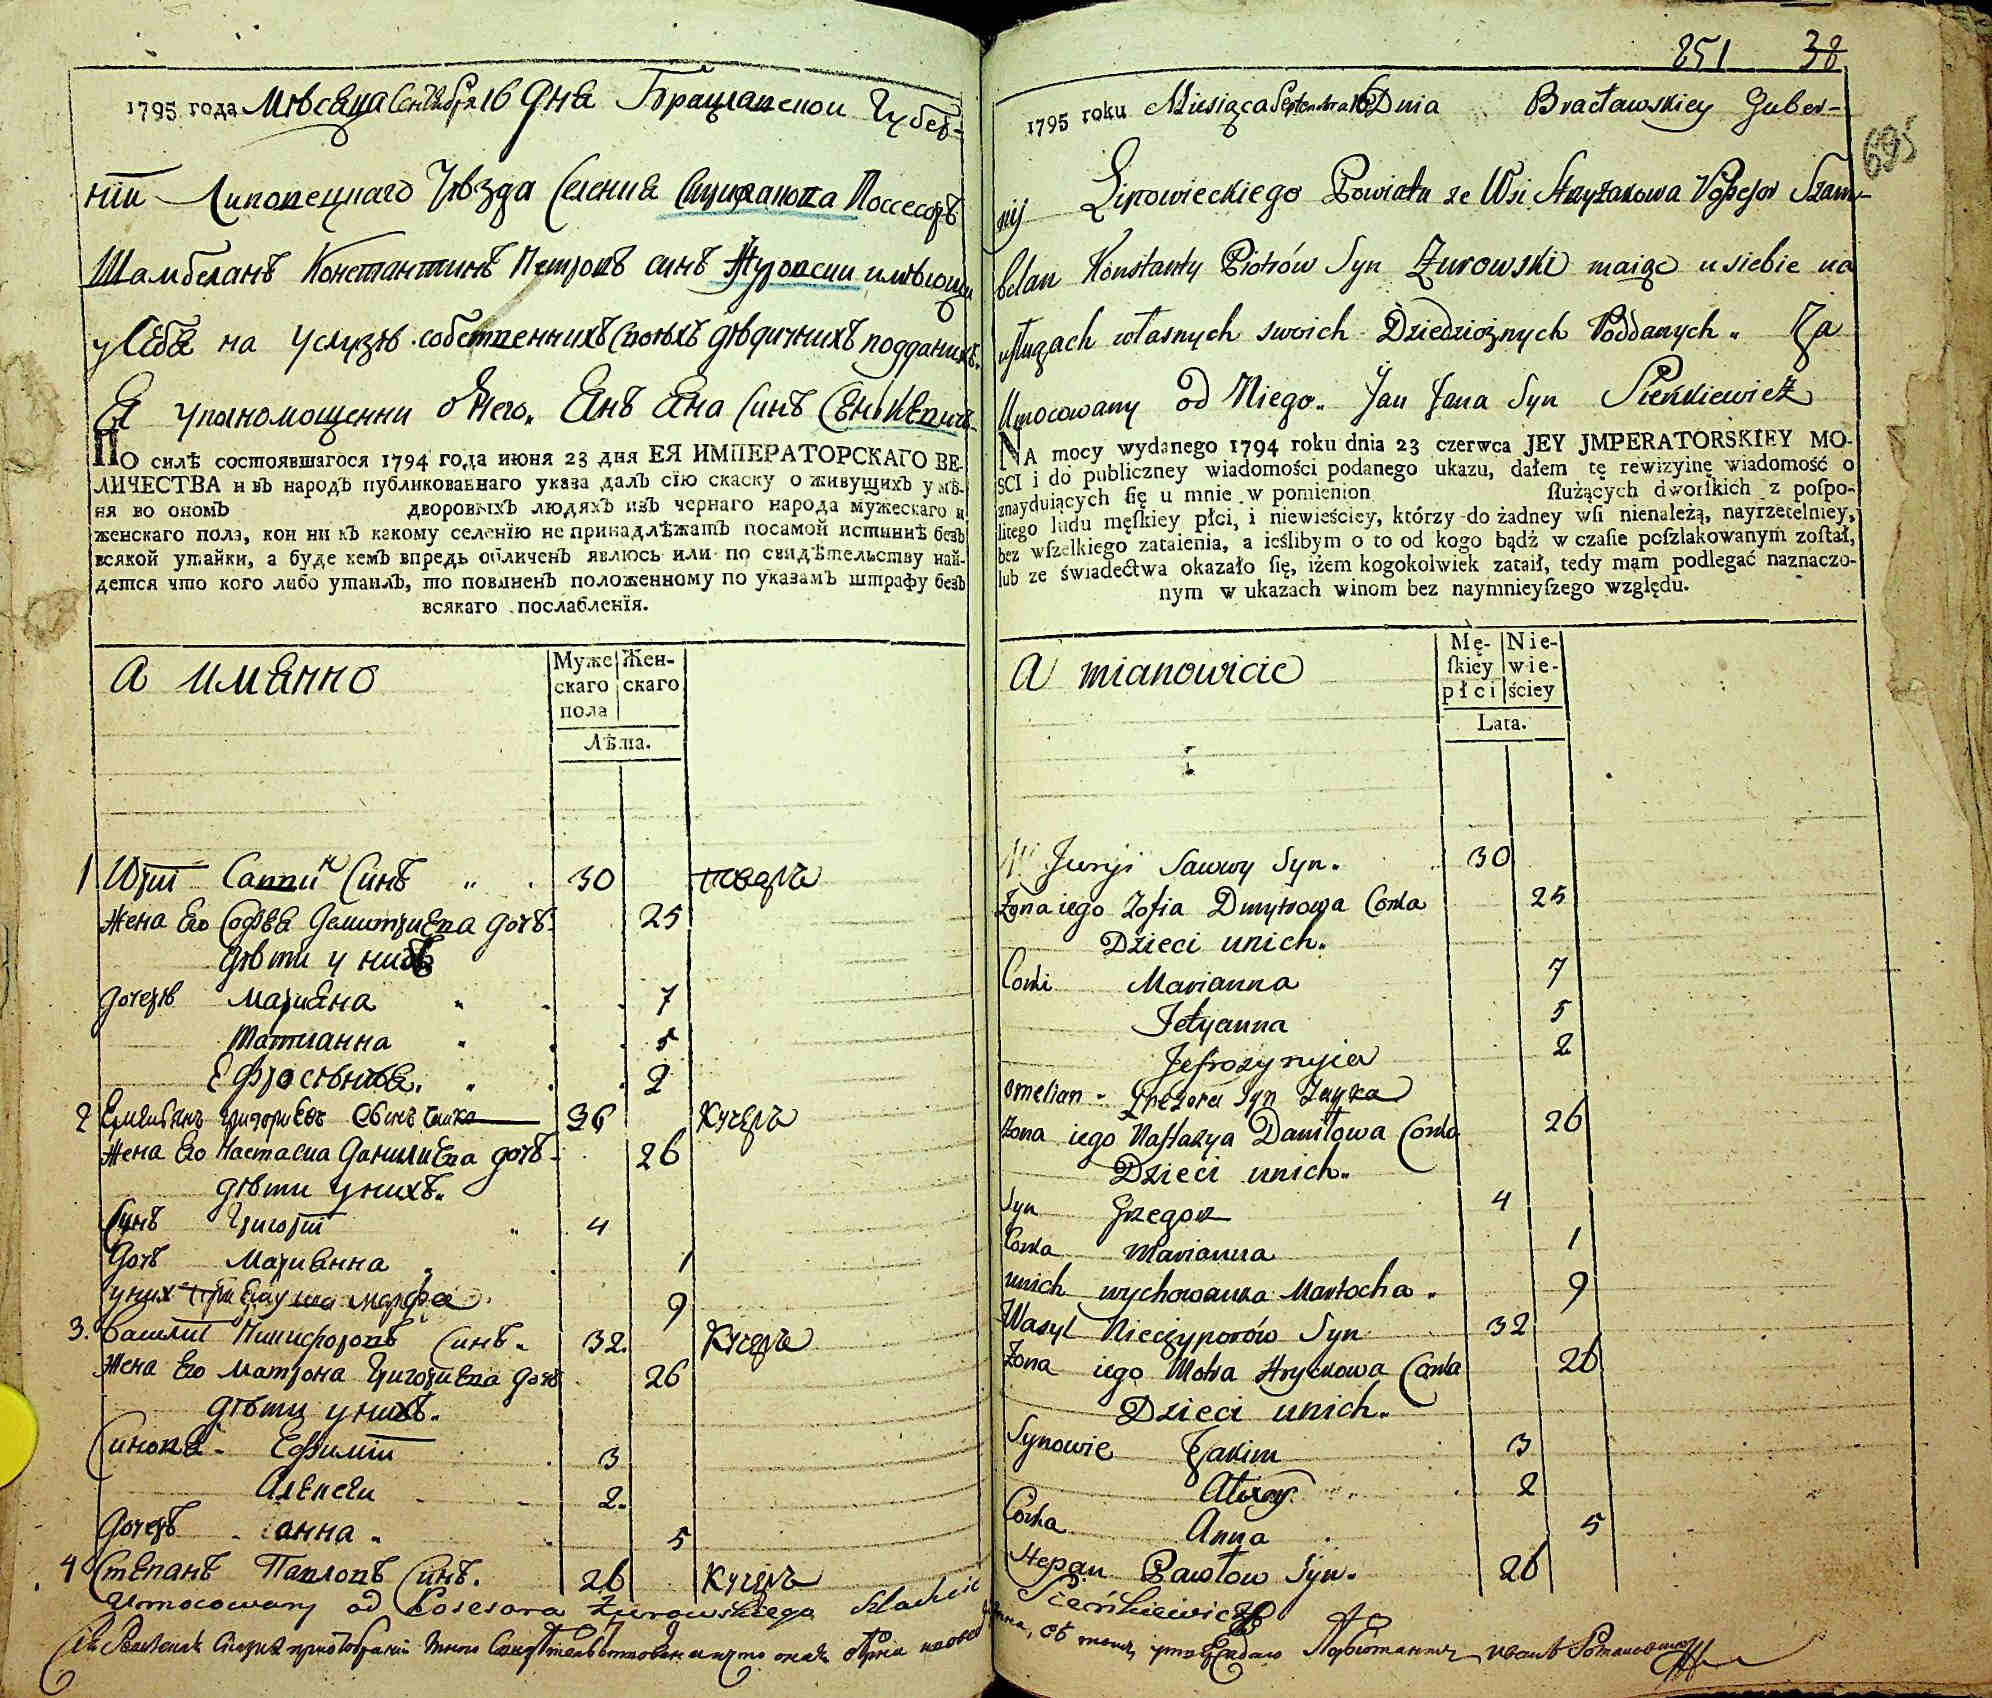 1795 года Мѣсяца Сентября 16 дня Брацлавской Губер-
ніи Липовецкаго Уѣзда Селения Стрижакова Поссесоръ
Шамбеланъ Константинъ Петровъ синъ Журовски имѣющи
у себя на услузѣ собственнихъ своихъ дѣдичнихъ подданихъ.
Я упалномощенни от него. Янъ Яна Синъ Сѣнькевичъ
ПО силѣ состоявшагося 1794 года июня 23 дня ЕЯ ИМПЕРАТОРСКАГО ВЕ-
ЛИЧЕСТВА и въ народъ публикованнаго указа далъ сію скаску о живущихъ у мѣ-
ня во ономъ дворовыхъ людяхъ изъ чернаго народа мужескаго и
женскаго пола, кои ни къ какому селенію не принадлѣжатъ посамой истиннѣ безъ
всякой утайки, а буде кемъ впредь обличенъ явлюсь или по свидѣтельству най-
дется что кого либо утаилъ, то повиненъ положенному по указамъ штрафу безъ
всякаго послабленія.
а имянно
Муже
скаго
пола
Жен-
скаго
Лѣта.
1 Юрій Саввин Синъ 30 поваръ
Жена Его Софья Демитриева дочь 25
дѣти у нихъ
дочерѣ Марияна 7
Татианна 5
Ефросѣния 2
2 Емелиянъ Григориевъ Сынъ 36 Кучеръ
Жена Его Настасиа Данилиева дочь 26
дѣти у нихъ.
Синъ Григорій 4
дочь Марианна 1
у них Марфа 9
3. Василій Никифоровъ Синъ. 32. Кучеръ
Жена Его Матрона Григориева дочь 26
дѣти у нихъ.
Синовя Ефимій 3
Алексеи 2.
дочерь анна 5
4 Степанъ Павловъ Синъ. 26 Кучеръ
Umocowany od Posesora Żurowskiego Szlachcic
851 38
695
1795 roku Miesiąca Septembra 16 Dnia Bracławskiey Guber-
nij Lipowieckiego Powiatu ze Wsi Stryżakowa Possesor Szam-
belan Konstanty Piotrów Syn Żurowski maiąc u siebie na
usługach własnych swoich Dziedzicznych Poddanych. Ja
Umocowany od Niego. Jan Jana Syn Sieńkiewicz
NA mocy wydanego 1794 roku dnia 23 czerwca JEY JMPERATORSKIEY MO-
SCI i do publiczney wiadomości podanego ukazu, dałem tę rewizyinę wiadomość o
znayduiących się u mnie w pomienion służących dworſkich z poſpo-
litego ludu męſkiey płci, i niewieściey, którzy do żadney wſi nienależą, nayrzetelniey,
bez wſzelkiego zataienia, a ieślibym o to od kogo bądź w czaſie poſzlakowanym został,
lub ze świadectwa okazało się, iżem kogokolwiek zataił, tedy mam podlegać naznaczo-
nym w ukazach winom bez naymnieyſzego względu.
a mianowicie
Mę-
ſkiey
płci
Nie-
wie-
ściey
Lata.
Juryi Sawwy Syn. 30
Żona iego Zofia Dmytrowa Corka 25
Dzieci unich.
Corki Marianna 7
Jetyanna 5
Jefrozynyia 2
Omelian Grzegora Syn Zayka
Żona iego Nastazya Daniłowa Corka 26
Dzieci unich.
Syn Grzegorz 4
Corka Marianna 1
unich wychowanka Martocha. 9
Wasyl Nieczyporów Syn 32
Żona iego Motra Hryckowa Corka 26
Dzieci unich.
Synowie Jakim 3
Alexy 2
Corka Anna 5
Stepan Pawłow Syn. 26
Sieńkiewicz